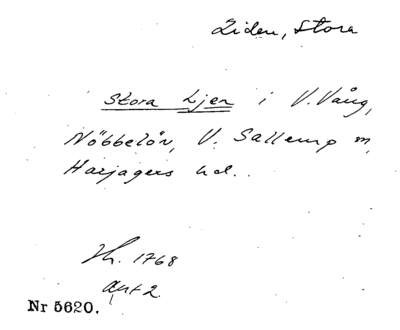 Liden, Stora
Stora Ljen i V. Vång,
Nöbbelöv, V. Sallerup m,
Harjagers hd.
Jh. 1768
akt 2
Nr 5620.